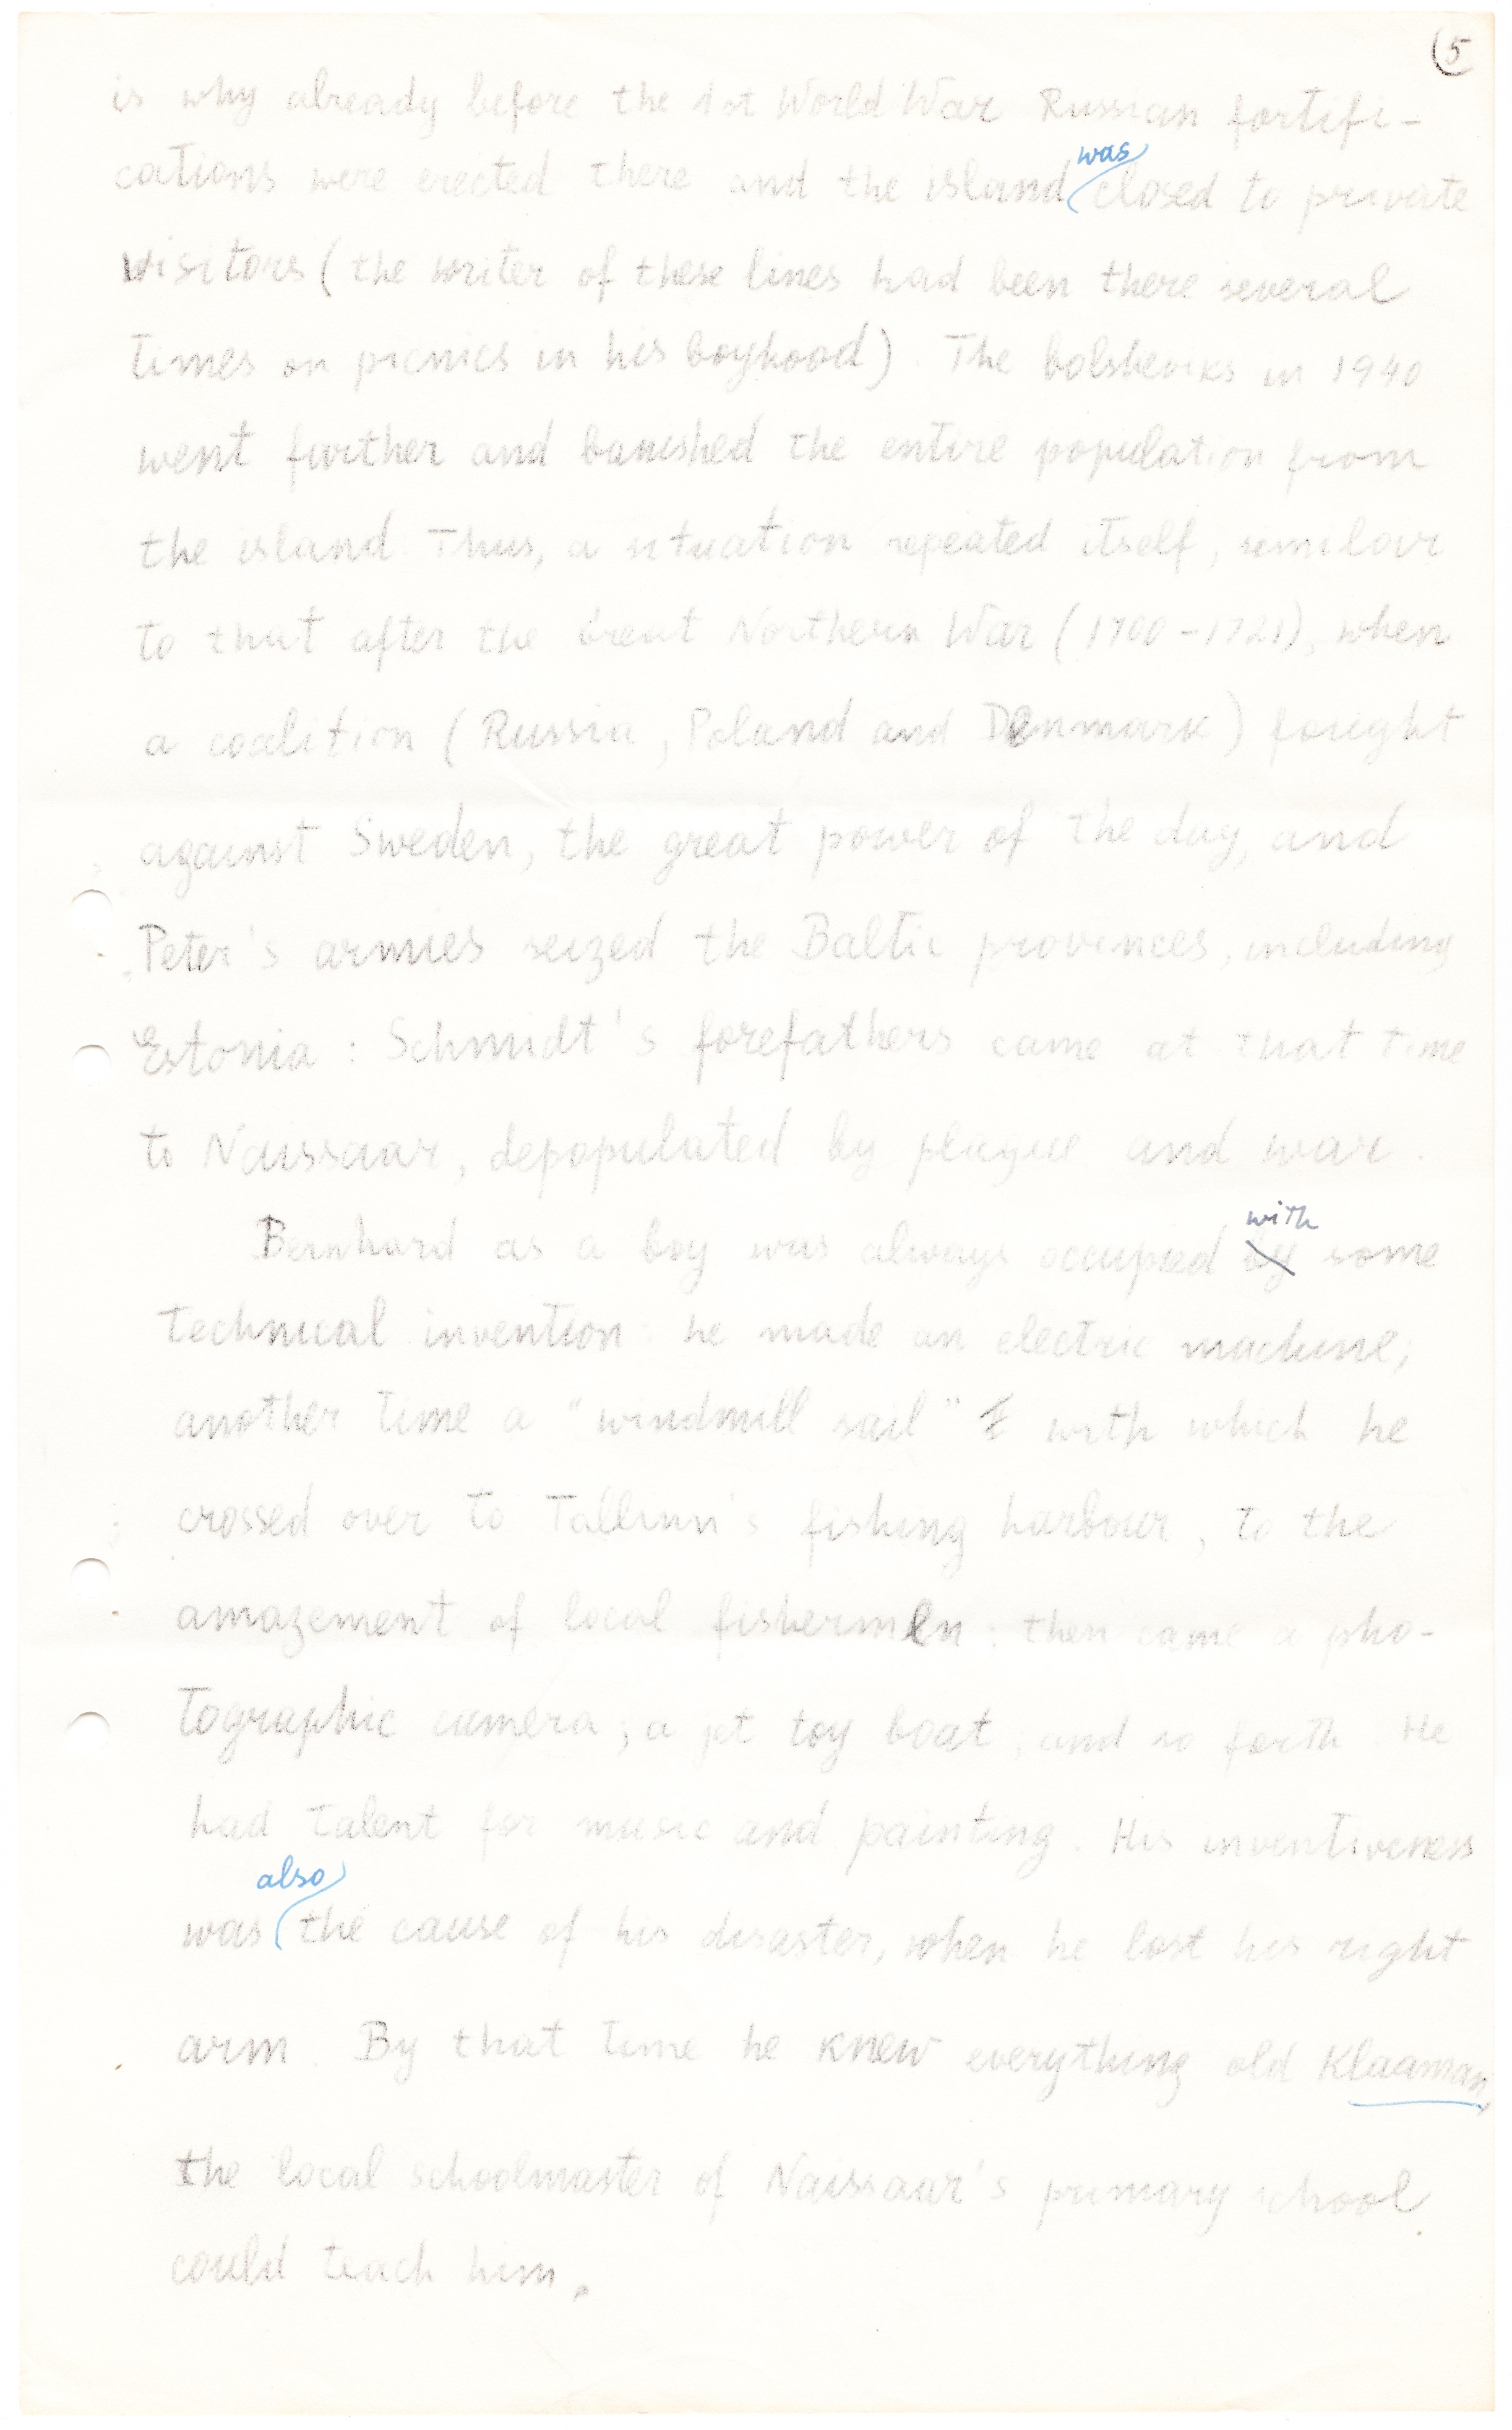 (5
is why already before the 1st World War Russian fortifi-
cations were erected there and the island was closed to private
visitors (the writer of these lines had been there several
times on picnics in his boyhood). The bolsheviks in 1940
went further and banished the entire population from
the island. Thus, a situation repeated itself, similar
to that after the Great Northern War (1700-1721), when
a coalition (Russia, Poland and Denmark) fought
against Sweden, the great power of the day, and
Peter's armies seized the Baltic provinces, including
Estonia: Schmidt's forefathers came at that time
to Naissaar, depopulated by plague and war.
Bernhard as a boy was always occupied by with some
technical invention: he made an electric machine,
another time a "windmill sail" with which he
crossed over to Tallinn's fishing harbour, to the
amazement of local fishermen: then came a pho-
tographic camera, a jet toy boat, and so forth. He
had talent for music and painting. His inventiveness
was also the cause of his disaster, when he lost his right
arm. By that time he knew everything old Klaaman,
the local schoolmaster of Naissaar's primary school
could teach him.